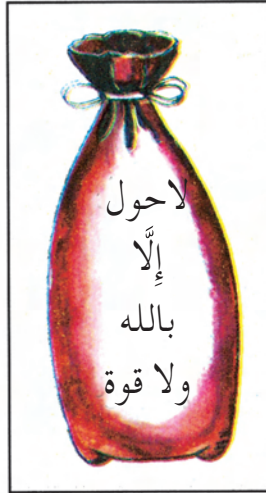 لاحول
إِلَّا
بالله
ولا قوة